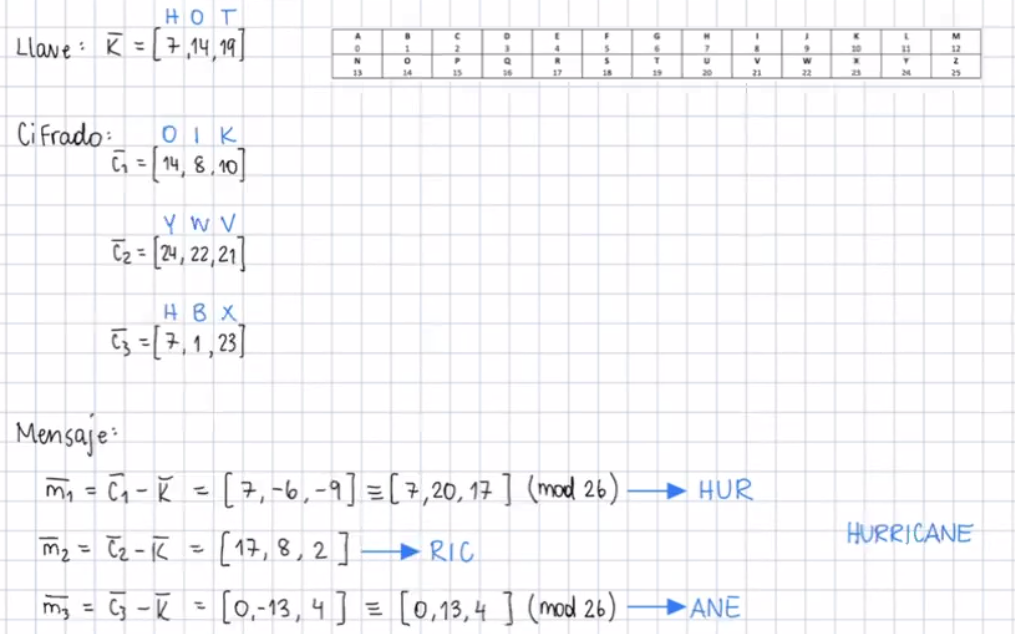 H O T
Llave: K̅ = [7,14,19]
A B C D E F G H I J K L M
0 1 2 3 4 5 6 7 8 9 10 11 12
N O P Q R S T U V W X Y Z
13 14 15 16 17 18 19 20 21 22 23 24 25
Cifrado:
O I K
c̅₁ = [14, 8, 10]
Y W V
c̅₂ = [24, 22, 21]
H B X
c̅₃ = [7, 1, 23]
Mensaje:
m̅₁ = c̅₁ - K̅ = [7, -6, -9] ≡ [7, 20, 17] (mod 26) → HUR
m̅₂ = c̅₂ - K̅ = [17, 8, 2] → RIC
HURRICANE
m̅₃ = c̅₃ - K̅ = [0, -13, 4] ≡ [0, 13, 4] (mod 26) → ANE